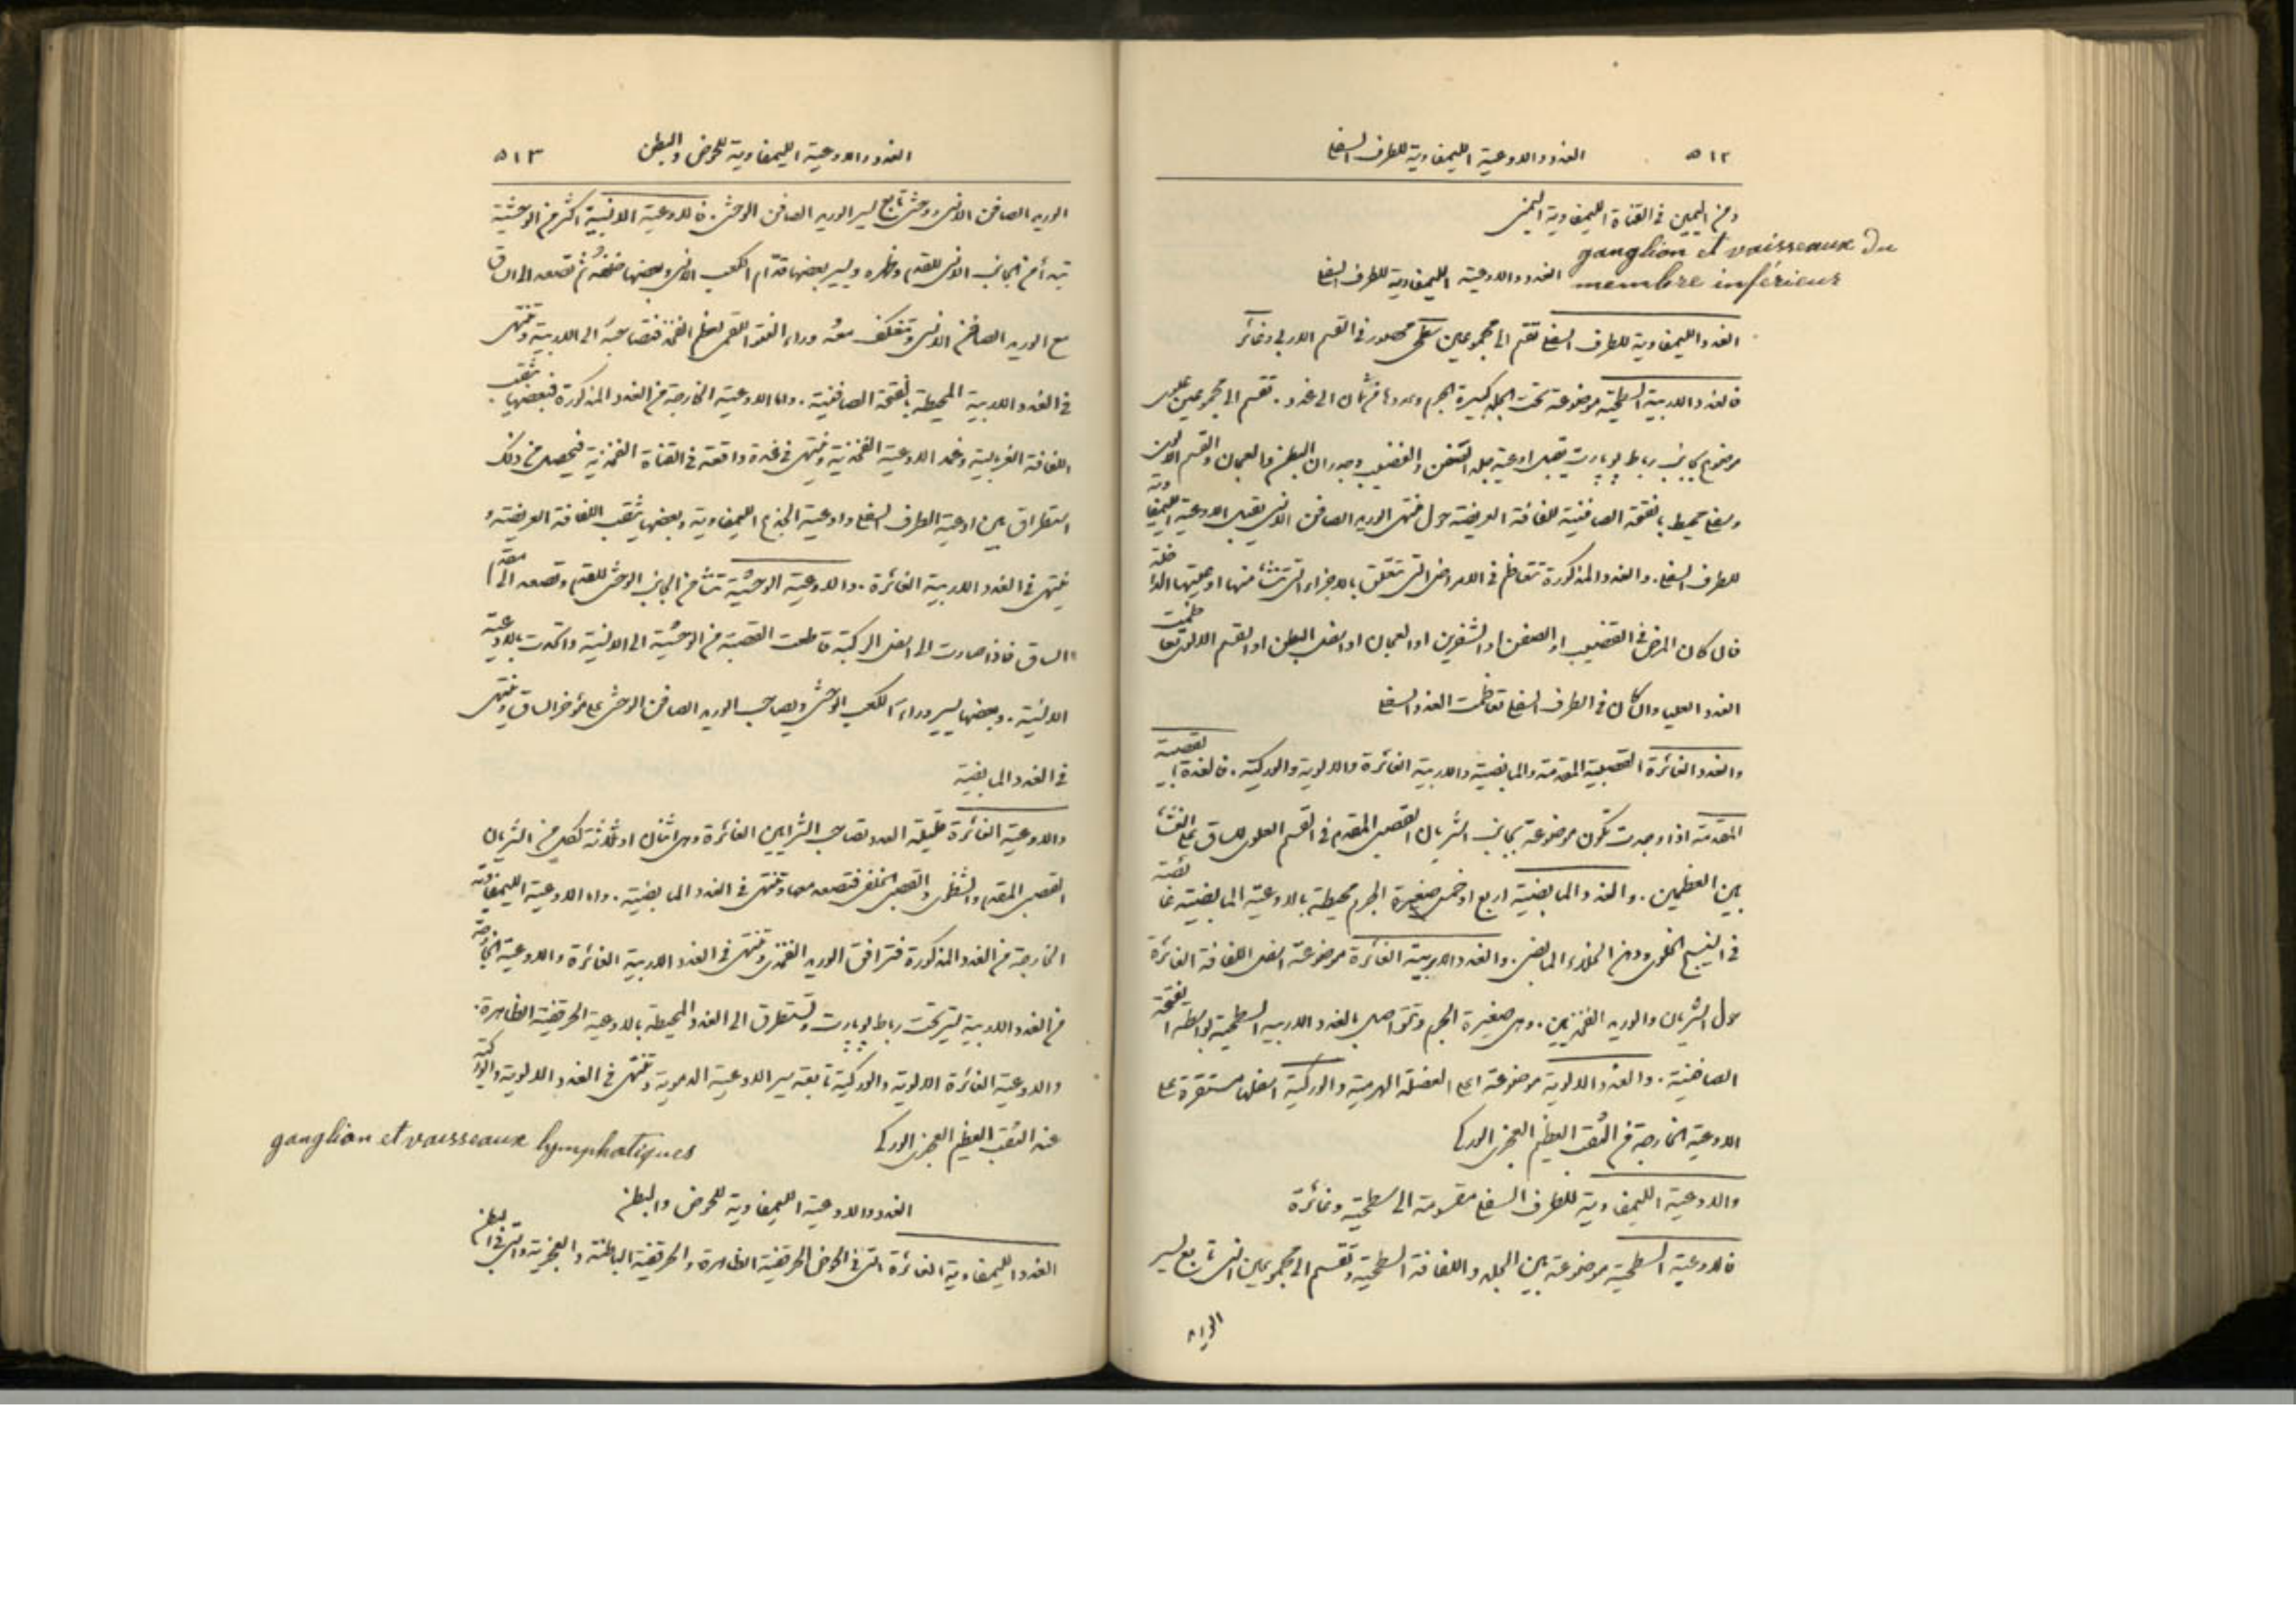 ٥١٢ الغدد والاوعية الليمفاوية للطرف السفلي
ومن اليمين في القناة الليمفاوية اليمنى
ganglion et vaisseaux du
membre inférieur
الغدد والاوعية الليمفاوية للطرف السفلي
الغدد الليمفاوية للطرف السفلي تقسم الى مجموعين سطحي محصور في القسم الاربي وغائر
فالغدد الاربية السطحية موضوعة تحت الجلد كبيرة الحجم وعددها من ثمان الى عدد. تقسم الى مجموعين علوي
موضوع بجانب رباط لوبارت يقبل اوعية جلد الصفن والقضيب وجدران البطن والعجان والقسم الالوي
وسفلي محيط بالفتحة الصافنية للفافة العريضة حول منتهى الوريد الصافن الانسي يقبل الاوعية الليمفاوية
للطرف السفلي. والغدد المذكورة تتعاظم في الامراض التي تتعلق بالاجزاء التي تنشأ منها اوعيتها الداخلة
فان كان المرض في القضيب او الصفن او الشفرين او العجان او اسفل البطن او القسم الالوي تعاظمت
الغدد العليا وان كان في الطرف السفلي تعاظمت الغدد السفلى
والغدد الغائرة القصبية المقدمة والمابضية والاربية الغائرة والالوية والوركية. فالغدة القصبية
المقدمة اذا وجدت تكون موضوعة بجانب الشريان القصبي المقدم في القسم العلوي للساق على الغشاء
بين العظمين. والغدد المابضية اربع او خمس صغيرة الحجم محيطة بالاوعية المابضية غائصة
في النسيج الخلوي ودهن الخلاء المابضي. والغدد الاربية الغائرة موضوعة اسفل اللفافة الغائرة
حول الشريان والوريد الفخذيين. وهي صغيرة الحجم وتتواصل بالغدد الاربية السطحية بواسطة الفتحة
الصافنية. والغدد الالوية موضوعة اعلى العضلة الهرمية والوركية اسفلها مستقرة على
الاوعية الخارجة من الثقب العظيم العجزي الوركي
والاوعية الليمفاوية للطرف السفلي مقسومة الى سطحية وغائرة
فالاوعية السطحية موضوعة بين الجلد واللفافة السطحية وتقسم الى مجموعين انسي تابع لسير
الوريد
الغدد والاوعية الليمفاوية للحوض والبطن ٥١٣
الوريد الصافن الانسي ووحشي تابع لسير الوريد الصافن الوحشي. فالاوعية الانسية اكثر من الوحشية
تبدأ من الجانب الانسي للقدم وظهره ويسير بعضها قدّام الكعب الانسي وبعضها خلفه ثم تصعد الى الساق
مع الوريد الصافن الانسي وتنعكف معه وراء العقدة لعظم الفخذ فتصاحبه الى الاربية وتنتهي
في الغدد الاربية المحيطة بالفتحة الصافنية. واما الاوعية الخارجة من الغدد المذكورة فبعضها يثقب
اللفافة الغربالية وغمد الاوعية الفخذية وينتهي في غدة واقعة في القناة الفخذية فيحصل من ذلك
استطراق بين اوعية الطرف السفلي واوعية الجذع الليمفاوية وبعضها يثقب اللفافة العريضة و
ينتهي في الغدد الاربية الغائرة. والاوعية الوحشية تنشأ من الجانب الوحشي للقدم وتصعد الى مقدم
الساق فاذا صارت الى اسفل الركبة قاطعت القصبة من الوحشية الى الانسية واتحدت بالاوعية
الانسية. وبعضها يسير وراء الكعب الوحشي ويصاحب الوريد الصافن الوحشي على مؤخر الساق وينتهي
في الغدد المابضية
والاوعية الغائرة قليلة العدد تصاحب الشرايين الغائرة وهي اثنان او ثلاثة لكل من الشريان
القصبي المقدم والشظوي والقصبي الخلفي فتصعد معها وتنتهي في الغدد المابضية. واما الاوعية الليمفاوية
الخارجة من الغدد المذكورة فترافق الوريد الفخذي وتنتهي في الغدد الاربية الغائرة والاوعية الخارجة
من الغدد الاربية تسير تحت رباط لوبارت وتستطرق الى الغدد المحيطة بالاوعية الحرقفية الظاهرة.
والاوعية الغائرة الالوية والوركية تابعة سير الاوعية الدموية وتنتهي في الغدد الالوية والوركية
عند الثقب العظيم العجزي الوركي
ganglion et vaisseaux lymphatiques
الغدد والاوعية الليمفاوية للحوض والبطن
الغدد الليمفاوية الغائرة التي في الحوض الحرقفية الظاهرة والحرقفية الباطنة والعجزية والتي في البطن